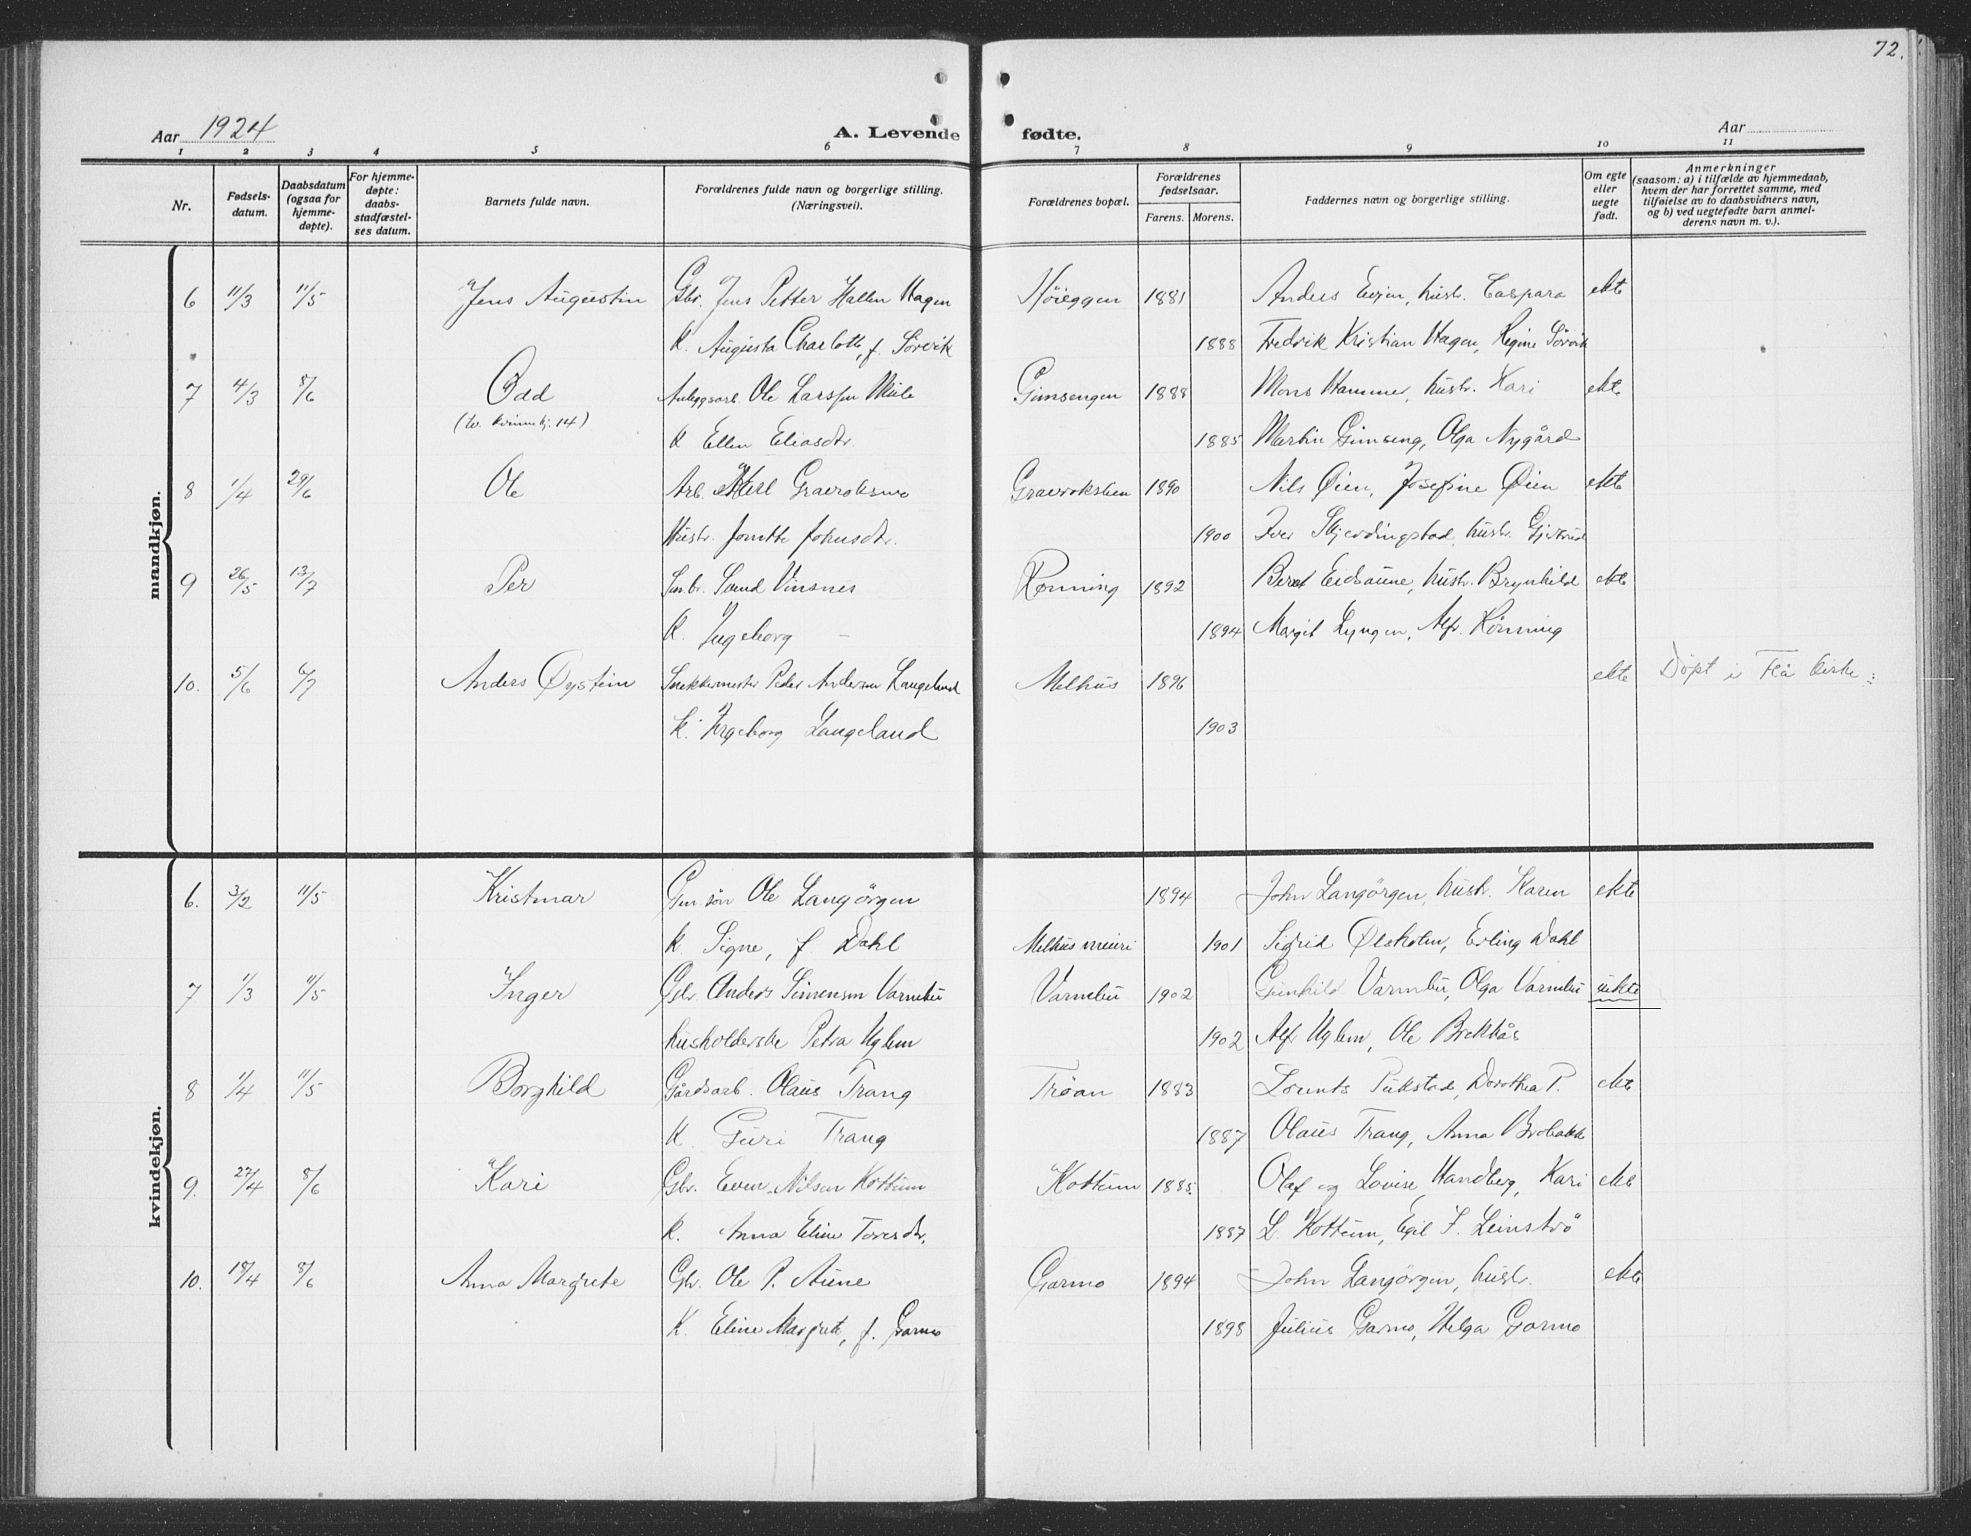 72.
Aar 1924
A. Levende fødte.
Aar
1 2 3 4 5 6 7 8 9 10 11
Nr.
Fødsels-datum.
Daabsdatum (ogsaa for hjemme-døpte).
For hjemme-døpte: daabs-stadfæstel-ses datum.
Barnets fulde navn.
Forældrenes fulde navn og borgerlige stilling. (Næringsvei).
Forældrenes bopæl.
Forældrenes fødselsaar.
Farens. Morens.
Faddernes navn og borgerlige stilling.
Om egte eller uegte født.
Anmerkninger
(saasom: a) i tilfælde av hjemmedaab,
hvem der har forrettet samme, med
tilføielse av to daabsvidners navn,
og b) ved uegtefødte barn anmel-
derens navn m. v.).
mandkjøn.
6 11/3 11/5 Jens Augustin Gbr. Jens Petter Hallen Hagen Høieggen 1881 Anders Evjen, hustr. Caspara ekte
K. Augusta Charlotte, f. Sørvik 1888 Fredrik Kristian Hagen, Regine Sørvik
7 4/3 8/6 Odd Anleggsarb. Ole Larssen Gimsengen 1888 Mons Hammer, hustr. Kari ekte
(tv. kvinnekj. 14) K Ellen Eliasdtr. 1885 Martin Gimseng, Olga Nygård
8 1/4 29/6 Ole Arb. Gravraksmo Gravrokslien 1890 Nils Øien, Josefine Øien ekte
Hustr. Jonette Johnsdtr. 1900 Iver Skjerdingstad, hustr. Gjertrud
9 26/5 13/7 Per Smbr. Vinsnes Rønning 1892 Beret Eidsaune, hustr. Brynhild ekte
K. Ingeborg – 1894 Margit Lyngen, Alfr. Rønning
10. 5/6 6/7 Anders Øystein Snekkermester Peder Andersen Langeland Melhus 1896 ekte Døpt i Flå kirke
K. Ingeborg Langeland 1903
kvindekjøn.
6. 3/2 11/5 Kristmar Gm.søn Ole Langørgen 1894 John Langørgen, hustr. Karen ekte
K Signe, f. Dahl Melhus meieri 1901 Sigrid Ølsholm, Erling Dahl
7 1/3 11/5 Inger Gbr. Anders Simensen Varmbu Varmbu 1902 Gunhild Varmbu, Olga Varmbu uekte
husholderske Petra Uglem 1902 Alf Uglem, Ole Brekkås
8 1/4 11/5 Borghild Gårdsarb. Olaus Trang Trøan 1883 Lorents Pukstad, Dorothea P. ekte
K Guri Trang 1887 Olaus Trang, Anna Brobakk
9. 27/4 8/6 Kari Gbr. Even Nilsen Kottum Kottum 1885 Olaf og Lovise Handberg, Kari ekte
K. Anna Eline Toresdtr. 1887 L. Kottum, Egil F. Leinstrø
10. 18/4 8/6 Anna Margrete Gbr. Ole P. Aune Garmo 1894 John Langørgen, hustr. ekte
K. Eline Margrete, f. Garmo 1898 Julius Garmo, Helga Garmo